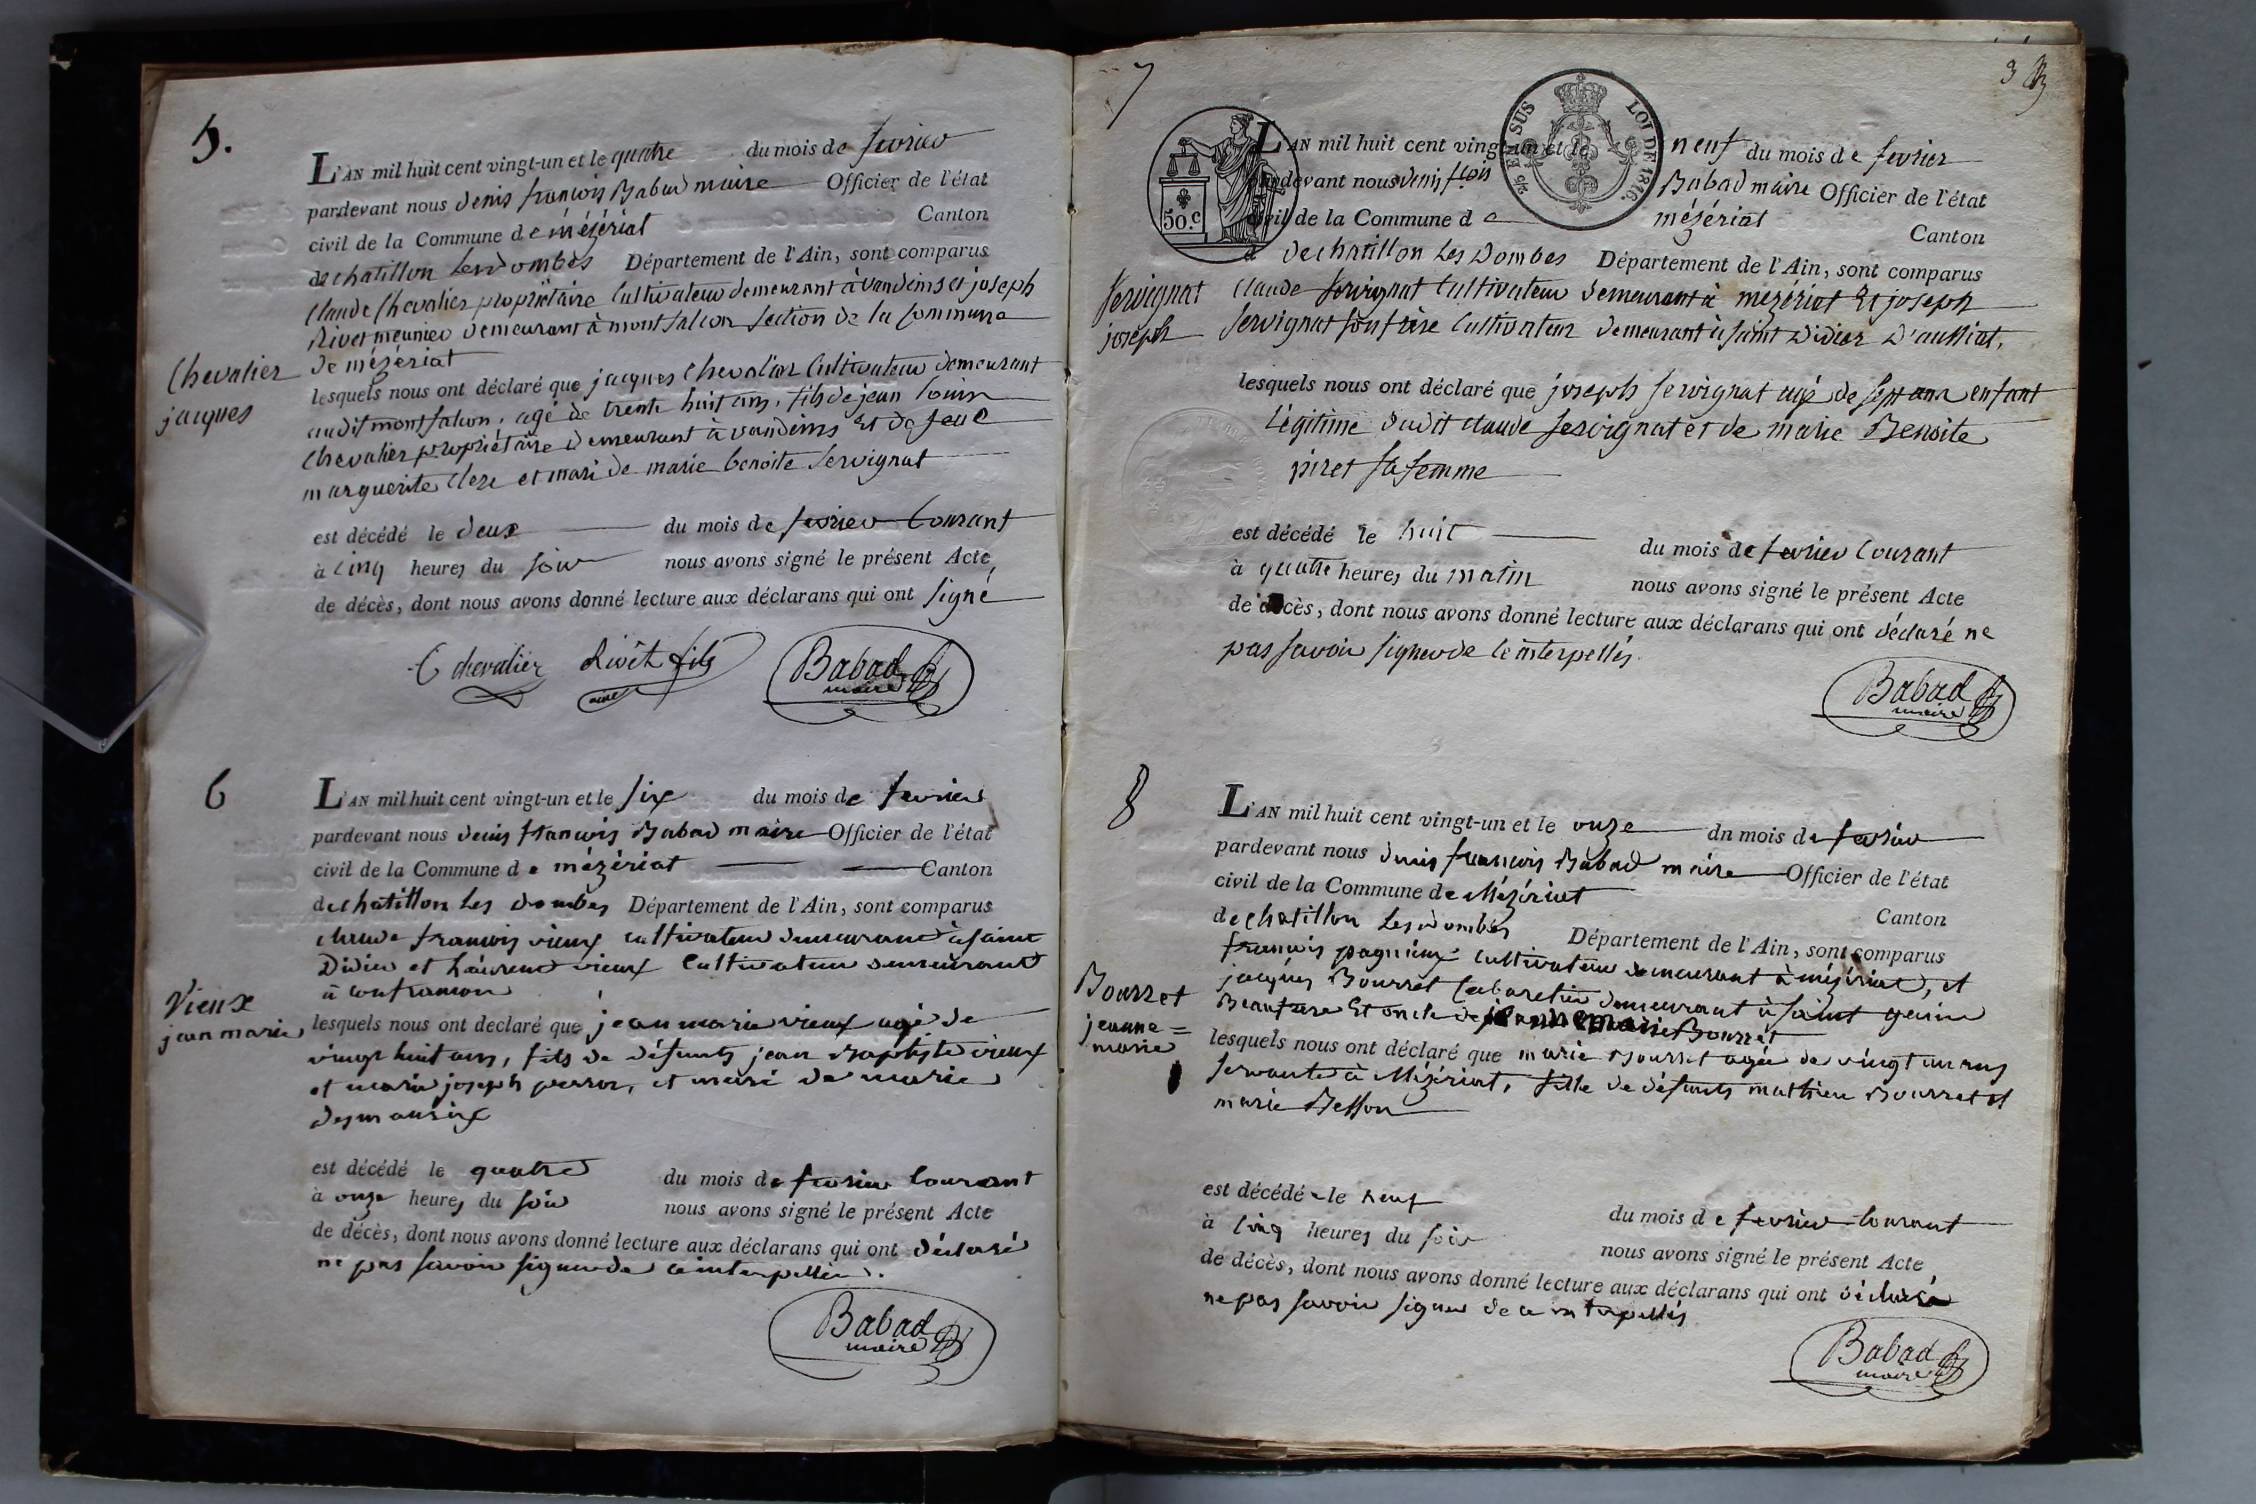 5.
L'AN mil huit cent vingt-un et le quatre du mois de fevrier
pardevant nous denis francois Babad maire Officier de l'état
civil de la Commune de mézériat Canton
de chatillon les dombes Département de l'Ain, sont comparus
claude Chevalier propriétaire Cultivateur demeurant à vandeins et joseph
Rivet meunier demeurant à montfalcon section de la Commune
de mézériat
Chevalier
jacques
lesquels nous ont déclaré que jacques Chevalier Cultivateur demeurant
audit montfalcon, agé de trente huit ans, fils de jean louis
Chevalier propriétaire demeurant à vandeins Et de feue
marguerite Clerc et mari de marie benoite Servignat
est décédé le deux du mois de fevrier Courant
à cinq heures du soir nous avons signé le présent Acte
de décès, dont nous avons donné lecture aux déclarans qui ont signé
C chevalier Rivet fils Babad
maire
6
L'AN mil huit cent vingt-un et le six du mois de fevrier
pardevant nous denis francois Babad maire Officier de l'état
civil de la Commune de mézériat Canton
de chatillon les dombes Département de l'Ain, sont comparus
claude francois vieux cultivateur demeurant à saint
Didier et laurent vieux Cultivateur demeurant
à confrancon
Vieux
jean marie
lesquels nous ont déclaré que jean marie vieux agé de
vingt huit ans, fils de défunts jean Baptiste vieux
et marie joseph perron, et mari de marie
desmaurix
est décédé le quatre du mois de fevrier Courant
à onze heures du soir nous avons signé le présent Acte
de décès, dont nous avons donné lecture aux déclarans qui ont déclaré
ne pas savoir signer de ce interpellés.
Babad
maire
7
3
50.c
EN SUS
LOI DE 1816.
L'AN mil huit cent vingt-un et le neuf du mois de fevrier
pardevant nous denis fçois Babad maire Officier de l'état
civil de la Commune de mézériat Canton
de chatillon les Dombes Département de l'Ain, sont comparus
Servignat
joseph
claude Servignat Cultivateur demeurant à mézériat Et joseph
Servignat son frère Cultivateur demeurant à saint Didier D'aussiat,
lesquels nous ont déclaré que joseph Servignat agé de sept ans enfant
légitime dudit claude Servignat et de marie Benoite
piret sa femme
est décédé le huit du mois de fevrier Courant
à quatre heures du matin nous avons signé le présent Acte
de décès, dont nous avons donné lecture aux déclarans qui ont déclaré ne
pas savoir signer de ce interpellés.
Babad
maire
8
L'AN mil huit cent vingt-un et le onze dn mois de fevrier
pardevant nous denis francois Babad maire Officier de l'état
civil de la Commune de Mézériat Canton
de chatillon les dombes Département de l'Ain, sont comparus
francois pagnieux cultivateur demeurant à mézériat, et
jacques Bourret Cabaretier demeurant à saint genis
Beaufrere Et oncle de jeanne marie Bourret
Bourret
jeanne=
marie
lesquels nous ont déclaré que marie Bourret agée de vingt un ans
servante à Mézériat, fille de défunts mathieu Bourret et
marie Besson
est décédé e le neuf du mois de fevrier Courant
à cinq heures du soir nous avons signé le présent Acte
de décès, dont nous avons donné lecture aux déclarans qui ont déclaré
ne pas savoir signer de ce interpellés
Babad
maire